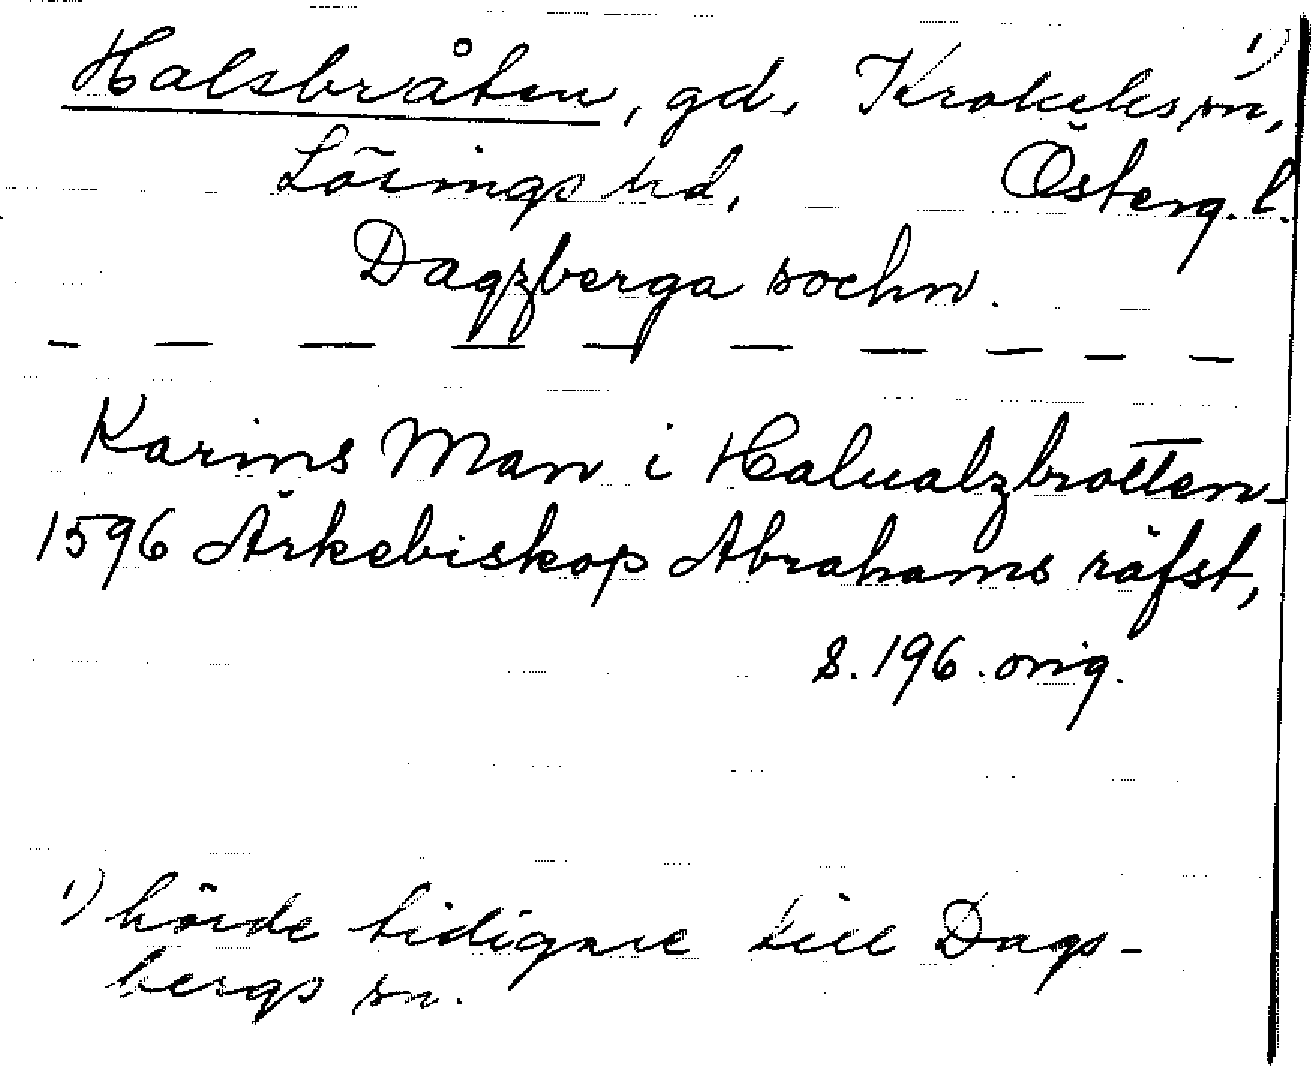 Halsbråten, gd, Krokeks sn, ¹)
Lösings hd, Österg. l.
Dagzberga sochn.
Karins Man i Halualzbrotten
1596 Ärkebiskop Abrahams räfst,
s. 196. orig.
¹) hörde tidigare till Dags-
bergs sn.